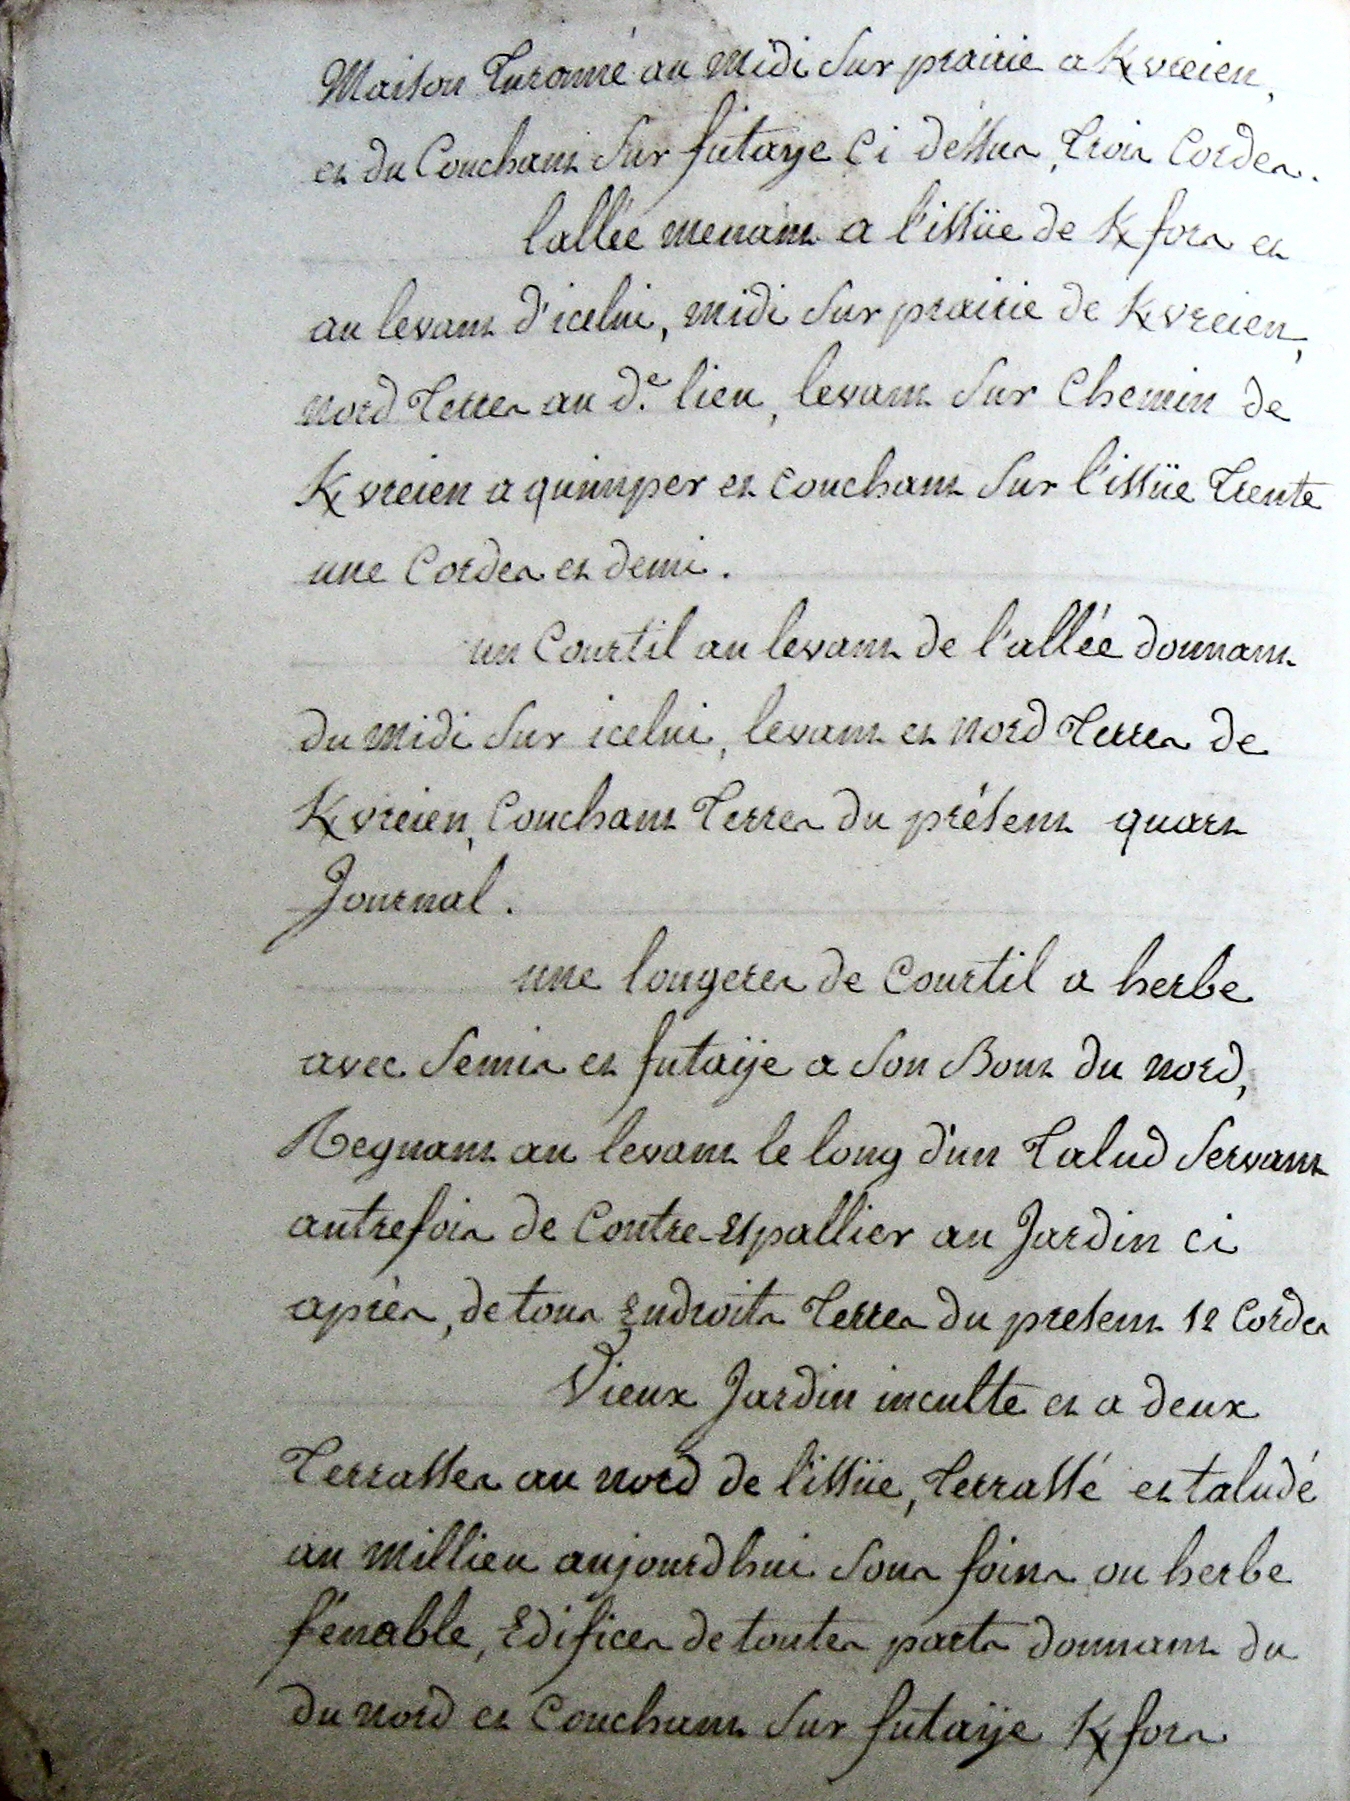 Maison Turomé au midi sur prairie a K/vreien,
et du Couchant sur futaye Ci dessus, trois Cordes.
lallée menant a l'issüe de K/fors et
au levant d'icelui, midi sur prairie de K/vreien,
nord Terres au d.e lieu, levant sur Chemin de
K/vreien a quimper et couchant sur l'issüe Trente
une Cordes et demi.
un Courtil au levant de l'allée donnant
du midi sur icelui, levant et nord Terres de
K/vreien, Couchant Terres du présent quart
Journal.
une longeres de Courtil a herbe
avec semis et futaÿe a son Bout du nord,
Regnant au levant le long d'un Talud servant
autrefois de Contre-Espallier au Jardin ci
après, de tous Endroits Terres du present 12 Cordes
Vieux Jardin inculte et a deux
Terrasses au nord de l'issüe, Terrassé et taludé
au millieu aujourdhui sous foins ou herbe
fénable, Edifices de toutes parts donnant du
du nord et Couchant sur futaÿe K/fors